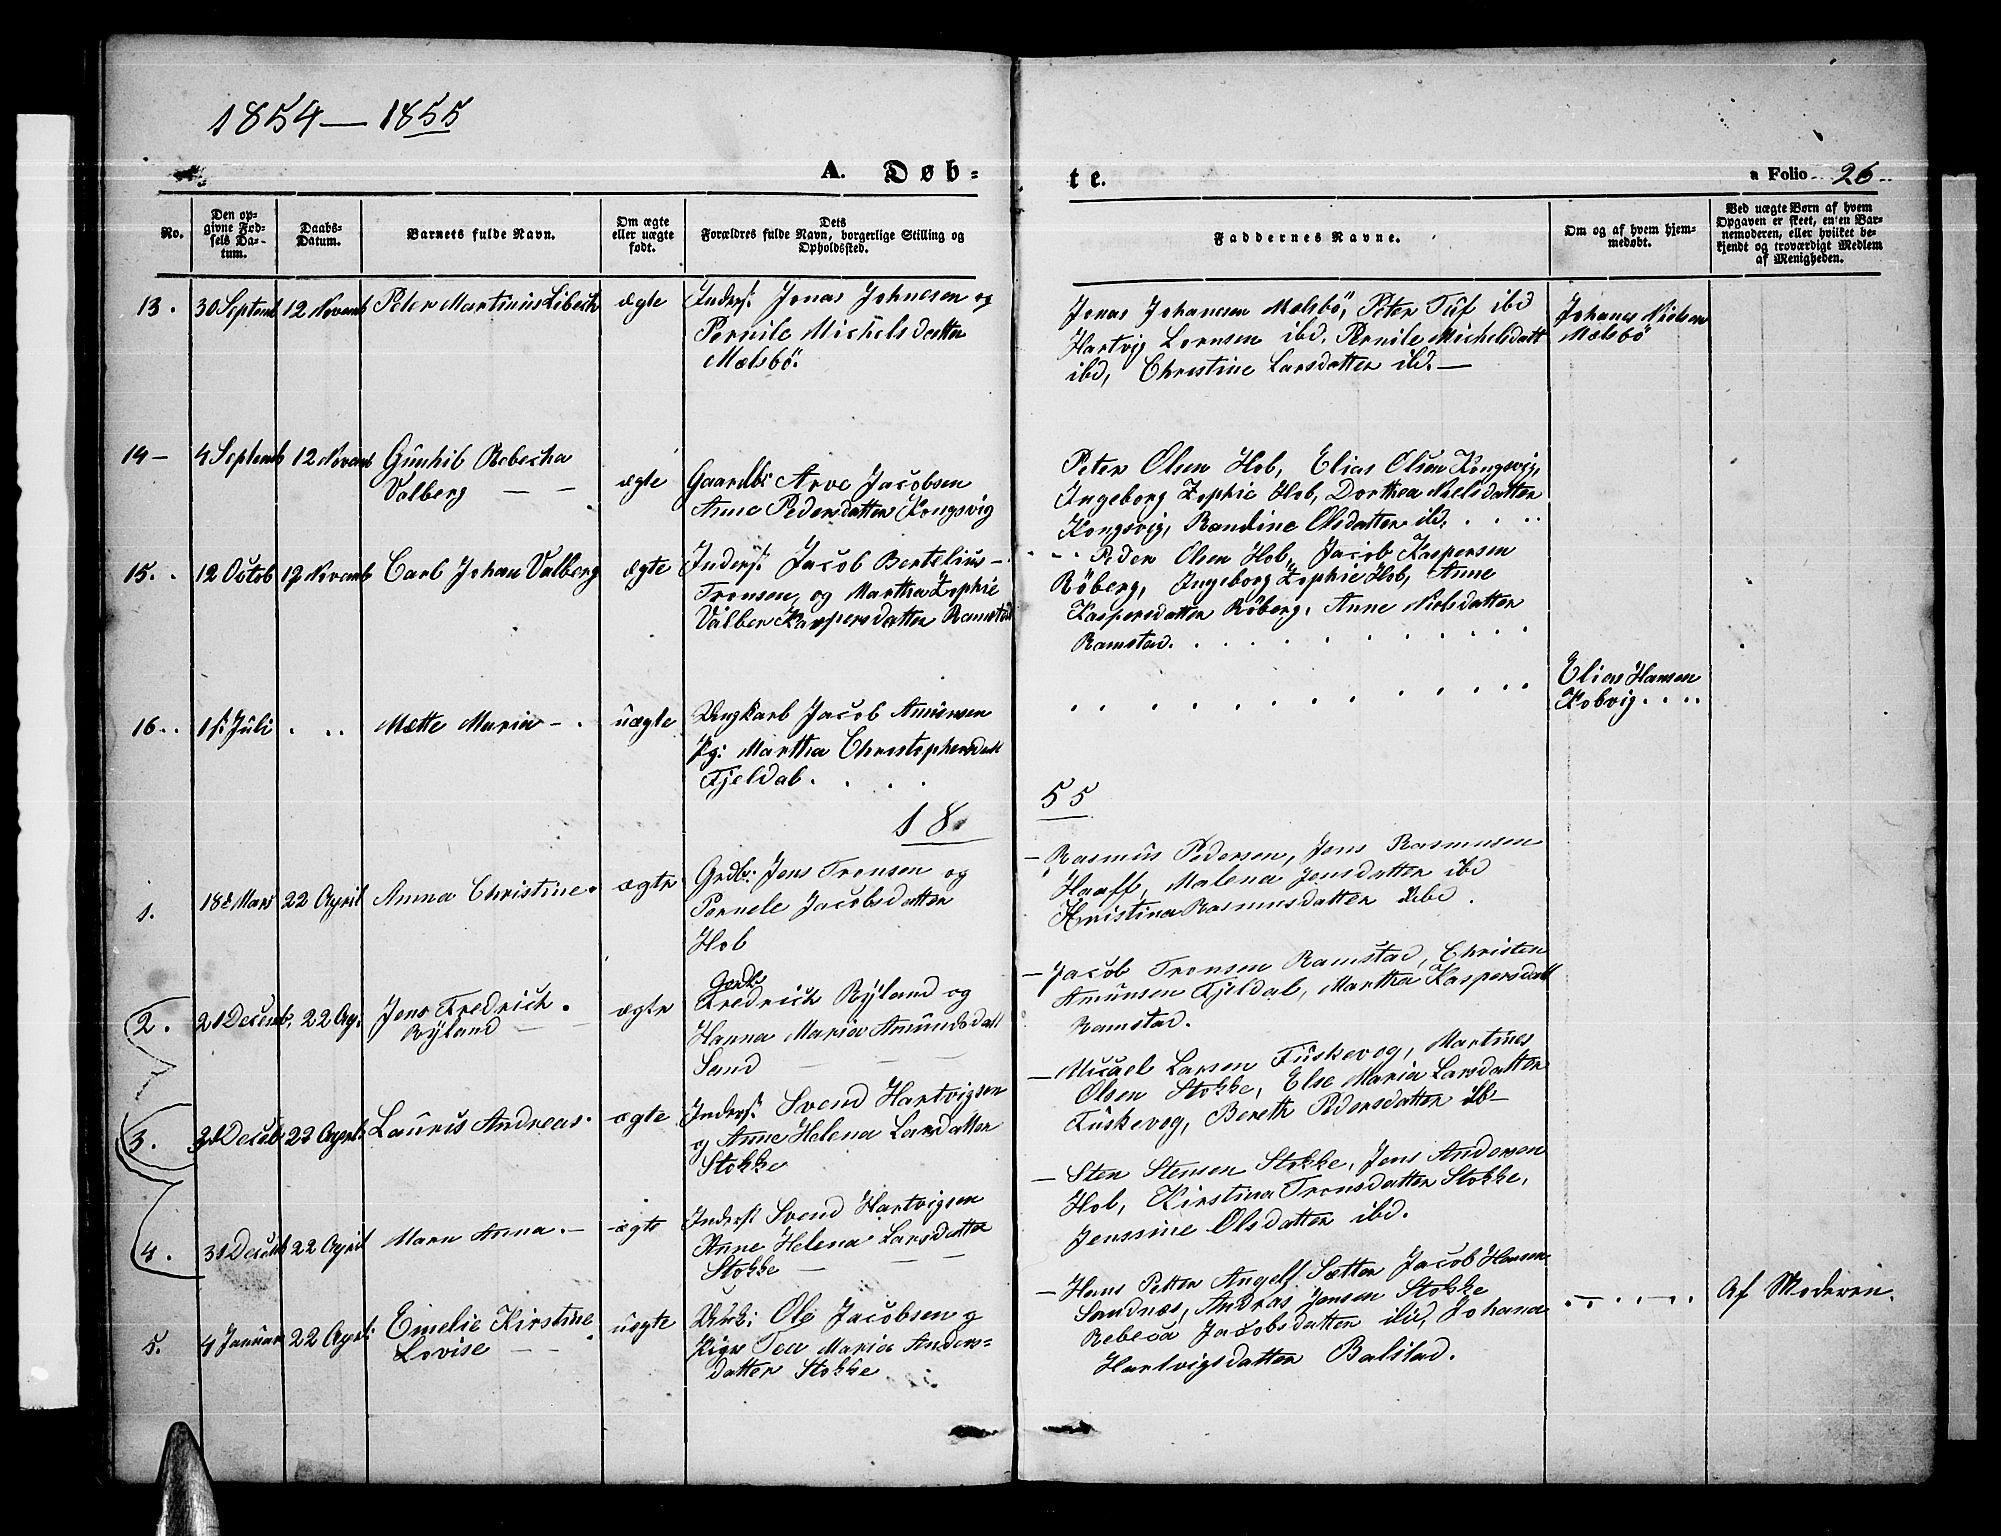 1854 — 1855
A. Døb-
te.
a Folio 26
No.
Den op-
givne Fød-
sels Da-
tum.
Daabs-
Datum.
Barnets fulde Navn.
Om ægte
eller uægte
født.
Dets
Forældres fulde Navn, borgerlige Stilling og
Opholdssted.
Faddernes Navne.
Om og af hvem hjem-
medøbt.
Ved uægte Børn af hvem
Opgaven er skeet, enten Bar-
nemoderen, eller hvilket be-
kjendt og troværdigt Medlem
af Menigheden.
13. 30 Septemb 12 Novemb Peter Martinius Libech ægte Inders: Jonas Johnesen og
Pernile Michelsdatter
Mælsbö.
Jonas Johanesen Mælsbö, Peter Tuf ibd
Hartvig Lornsen ibd. Pernile Michelsdatt
ibd, Christine Larsdatter ibd. —
Johanes Nielsen
Mælsbö
14 — 4 Septemb 12 Novemb Gunhil Rebecha
Valberg — —
ægte Gaardb: Arve Jacobsen
Anne Pedersdatter Kongsvig
Peter Olsen Hob, Elias Olsen Kongsvig,
Ingeborg Zophie Hob, Dorthea Nielsdatter
Kongsvig, Randine Olsdatter ibd.
15. 12 Octob 12 Novemb Carl Johan Valberg ægte Inders: Jacob Bertelius —
Tronsen, og Martha Zophie
Valber Kaspersdatter Ramstad
Peder Olsen Hob, Jacob Kaspersen
Röberg, Ingeborg Zophie Hob, Anne
Kaspersdatter Röberg, Anne Nielsdatter
Ramstad.
16. 1st Juli Mætte Maria — uægte Ungkarl Jacob Amunsen
Pg: Martha Christophersdatt
Fjeldal.
Elias Hansen
Kobvig
18 55
1. 18de Mars 22 April Anna Christine. ægte Grdb: Jens Tronsen og
Pernele Jacobsdatter
Hob
— Rasmus Pedersen, Jens Rasmusen
Haaff, Malena Jensdatter ibd
Kristina Rasmusdatter ibd.
2. 21 Decemb. 22 Apr. Jens Fredrich.
Ryland — —
ægte Grdb
Fredrich Ryland og
Hanna Maria Amundsdatt
Sand — —
— Jacob Tronsen Ramstad, Christen
Amunsen Fjeldal, Martha Kaspersdatt
Ramstad.
3. 31 Deceb 22 April Lauris Andreas. ægte Inders: Svend Hartvigsen
og Anne Helena Larsdatter
Stokke
— Micael Larsen Fuskevog, Martines
Olsen Stokke, Else Maria Larsdatter
Fuskevog, Bereth Pedersdatter ib —
4. 31 Deceb 22 April Maren Anna. — ægte Inders: Svend Hartvigsen
Anne Helena Larsdatter
Stokke — —
— Sten Stensen Stokke, Jens Andersen
Hob, Kirstina Tronsdatter Stokke,
Jenssine Olsdatter ibd.
5. 4 Januar 22 April: Emelie Kirstine
Lovise — —
uægte Unk: Ole Jacobsen og
Pige Tea Maria Anders-
datter Stokke
— Hans Petter Angelf Sætter Jacob Hansen
Sandnæs, Andras Jensen Stokke
Rebeca Jacobsdatter ibd, Johana
Hartvigsdatter Balstad.
Af Moderen.